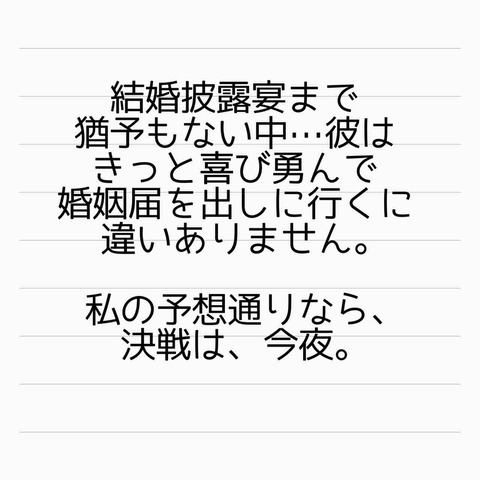 結婚披露宴まで
猶予もない中…彼は
きっと喜び勇んで
婚姻届を出しに行くに
違いありません。
私の予想通りなら、
決戦は、今夜。